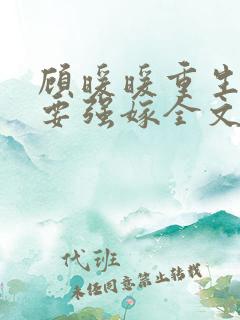 顾暖暖重生
要强嫁全文
代班
未经同意禁止转载